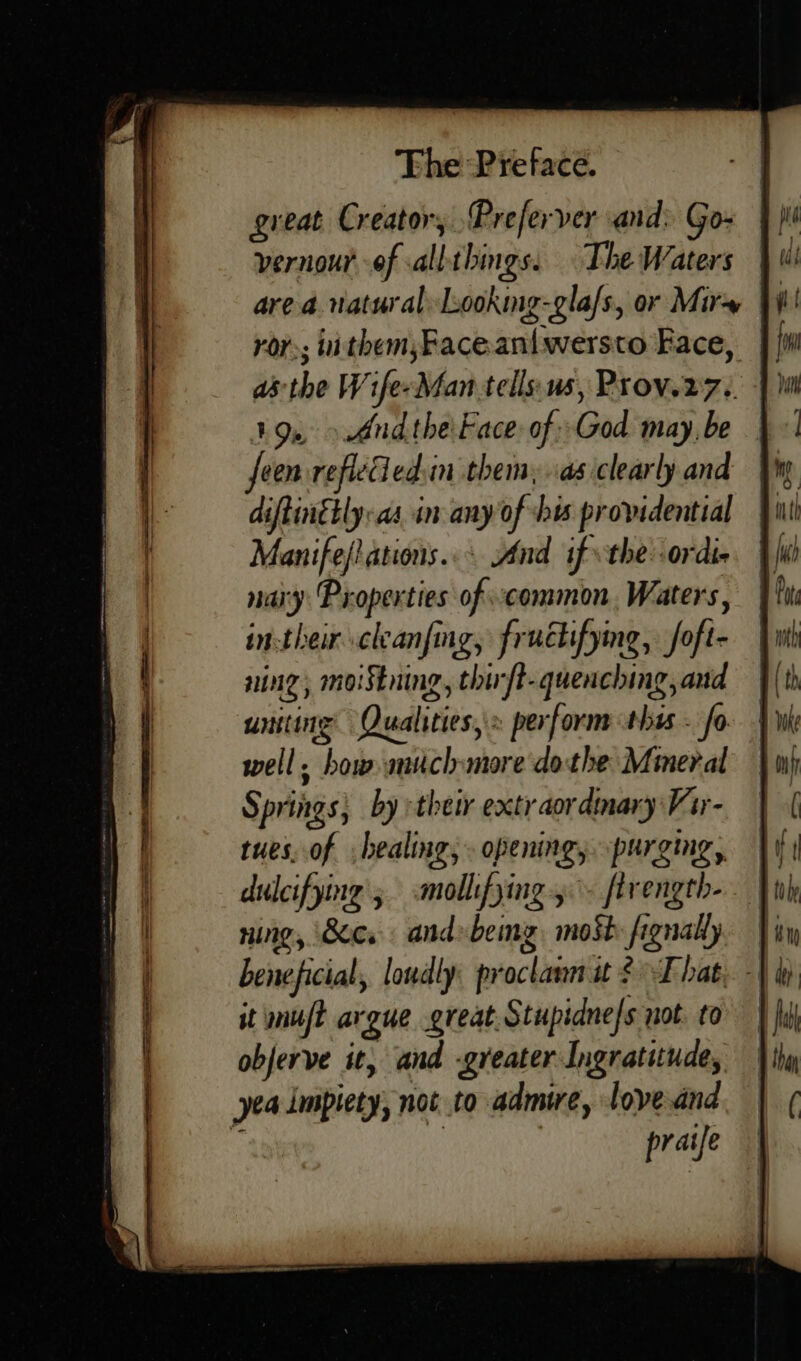 The Preface.
great Creator, Preſerver and Go-
vernour of all things. The Waters
are a natural Looking-glaſs, or Mir-
ror; in them, Face anſwers to Face,
as the Wiſe-Man tells us, Prov. 27.
19. And the Face of God may be
ſeen reflected in them, as clearly and
diſtinctly as in any of his providential
Manifeſtations. And if the ordi-
nary Properties of common Waters,
in their cleanſing, fructifying, ſoft-
ning, moiſtning, thirſt-quenching, and
uniting Qualities, perform this ſo
well; how much more do the Mineral
Springs, by their extraordinary Vir-
tues of healing, opening, purging,
dulcifying, mollifying, ſtrength-
ning, &c. and being moſt ſignally
beneficial, loudly proclaim it? That
it muſt argue great Stupidneſs not to
obſerve it, and greater Ingratitude,
yea impiety, not to admire, love and
praiſe